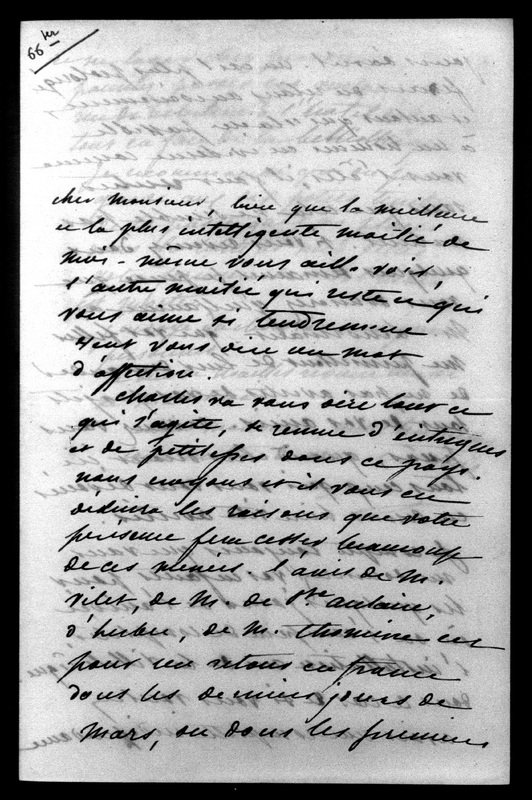 66 ter
cher monsieur, bien que la meilleure
et la plus intelligente moitié de
moi-même vous aille voir
l'autre moitié qui reste ici qui
vous aime si tendrement
veut vous dire un mot
d'affection.
Charles va vous dire tout ce
qui s'agite, se remue d'intrigues
et de petitesses dans ce pays.
nous croyons et il vous en
déduira les raisons que votre
présence fera cesser beaucoup
de ces menées. l'avis de M.
Vilet, de M. de Ste aulaire,
d'herbet, de M. est
pour un retour en france
dans les derniers jours de
Mars, ou dans les premiers